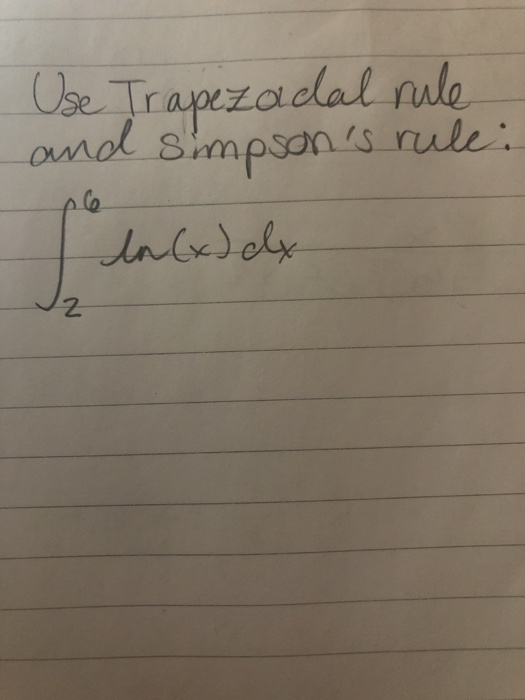 Use Trapezoidal rule
and Simpson's rule:
∫₂⁶ ln(x) dx